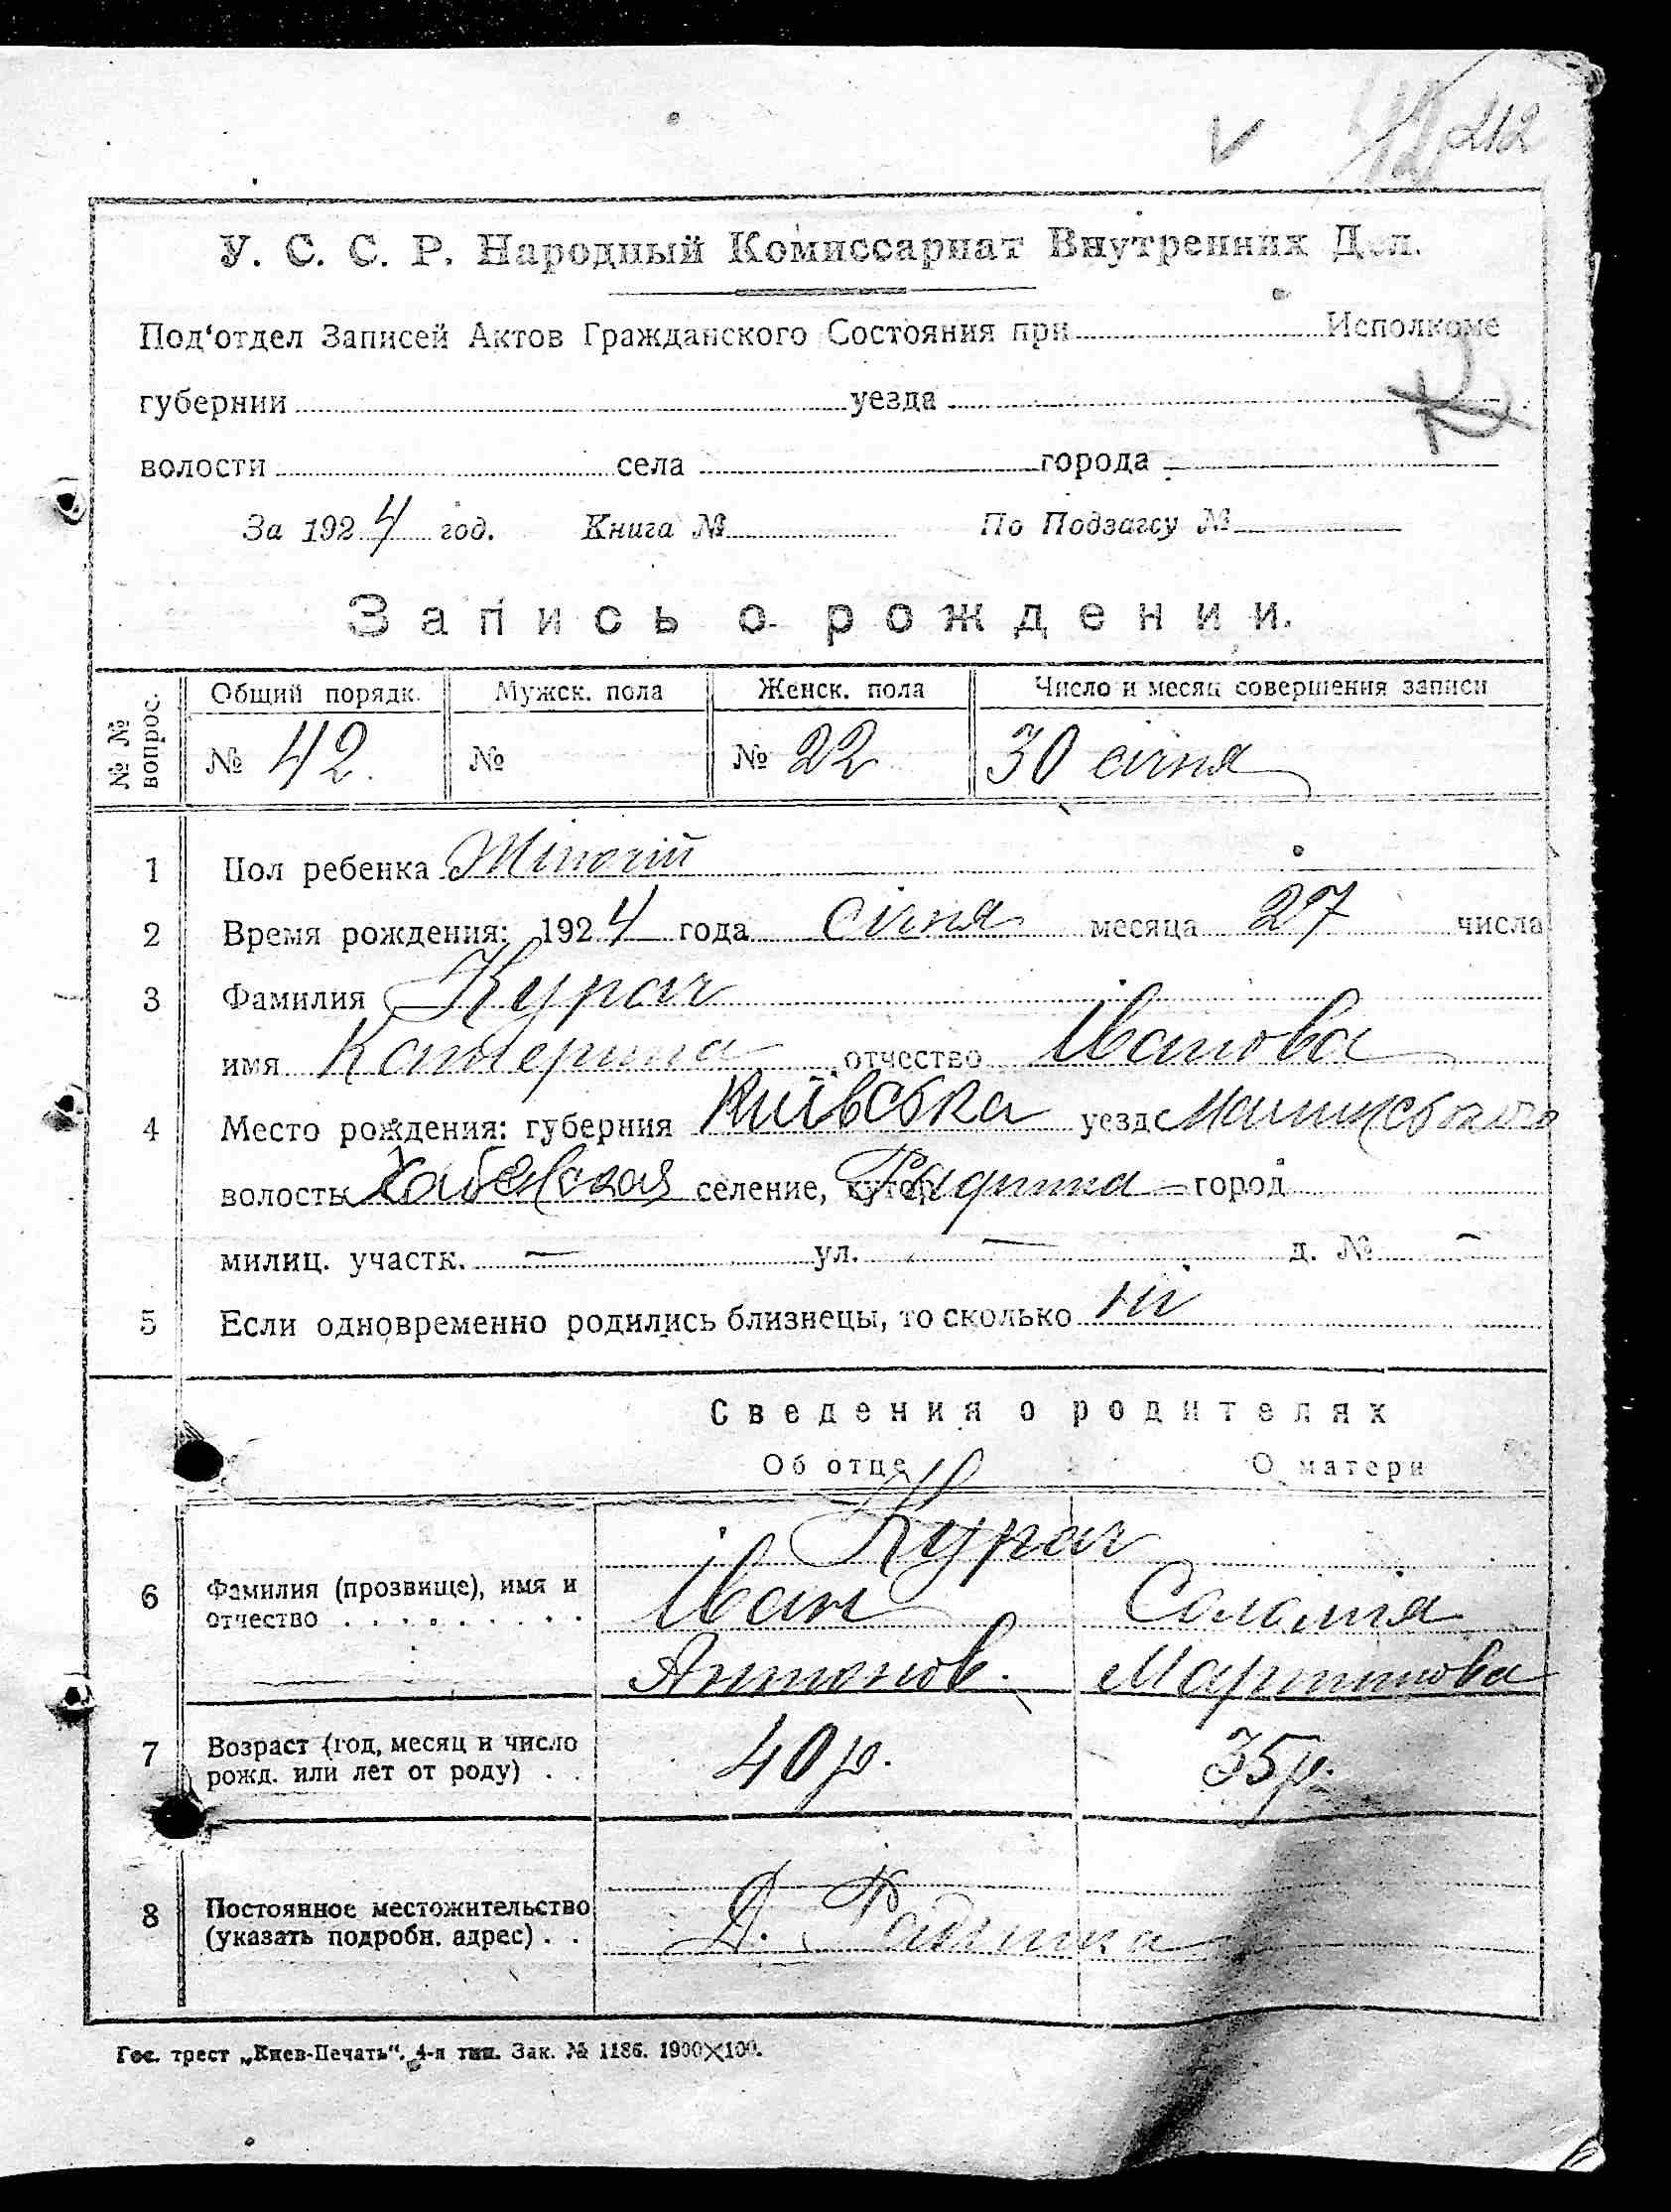 212
У. С. С. Р. Народный Комиссариат Внутренних Дел.
Под‘отдел Записей Актов Гражданского Состояния при Исполкоме
губернии уезда
волости села города
За 1924 год. Книга № По Подзагсу №
Запись о рождении.
№ № вопрос. Общий порядк. Мужск. пола Женск. пола Число и месяц совершения записи
№ 42. № № 22 30 січня
1 Пол ребенка Жіночий
2 Время рождения: 1924 года січня месяца 27 числа
3 Фамилия Курач
имя Катерина отчество Іванова
4 Место рождения: губерния Київська уезд
волость Хабенская селение, хутор Радинка город
милиц. участк. — ул. — д. № —
5 Если одновременно родились близнецы, то сколько ні
Сведения о родителях
Об отце О матери
Курач
6 Фамилия (прозвище), имя и отчество Іван Соломія
Антонов. Мартинова
7 Возраст (год, месяц и число рожд. или лет от роду) 40 р. 35 р.
8 Постоянное местожительство (указать подробн. адрес) Д. Радинка
Гос. трест „Киев-Печать“. 4-я тип. Зак. № 1186. 1900×100.